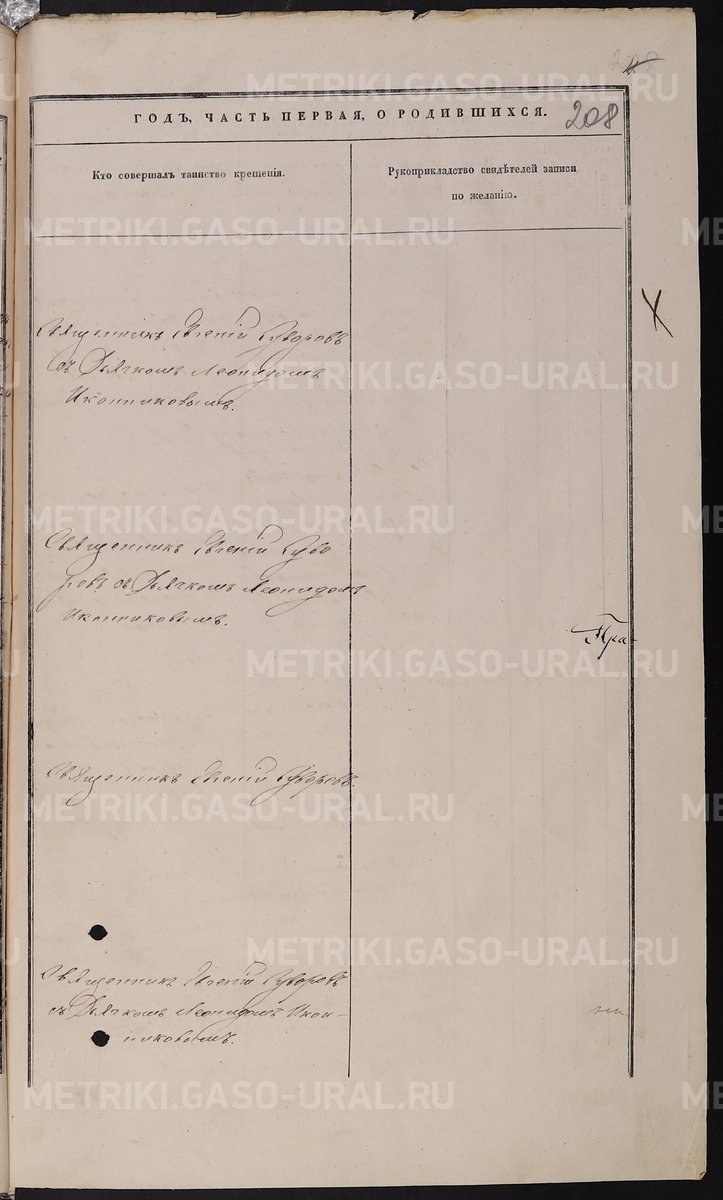 208
ГОДЪ, ЧАСТЬ ПЕРВАЯ, О РОДИВШИХСЯ.
Кто совершалъ таинство крещенія.
Рукоприкладство свидѣтелей записи
по желанію.
Священникъ Евгеній Суворовъ
съ Дьячкомъ Леонидомъ
Иконниковымъ.
Священникъ Евгеній Суво
ровъ съ Дьячкомъ Леонидомъ
Иконниковымъ.
Пра-
Священникъ Евгеній Суворовъ.
Священникъ Евгеній Суворовъ
съ Дьячкомъ Леонидомъ Икон-
никовымъ.
METRIKI.GASO-URAL.RU